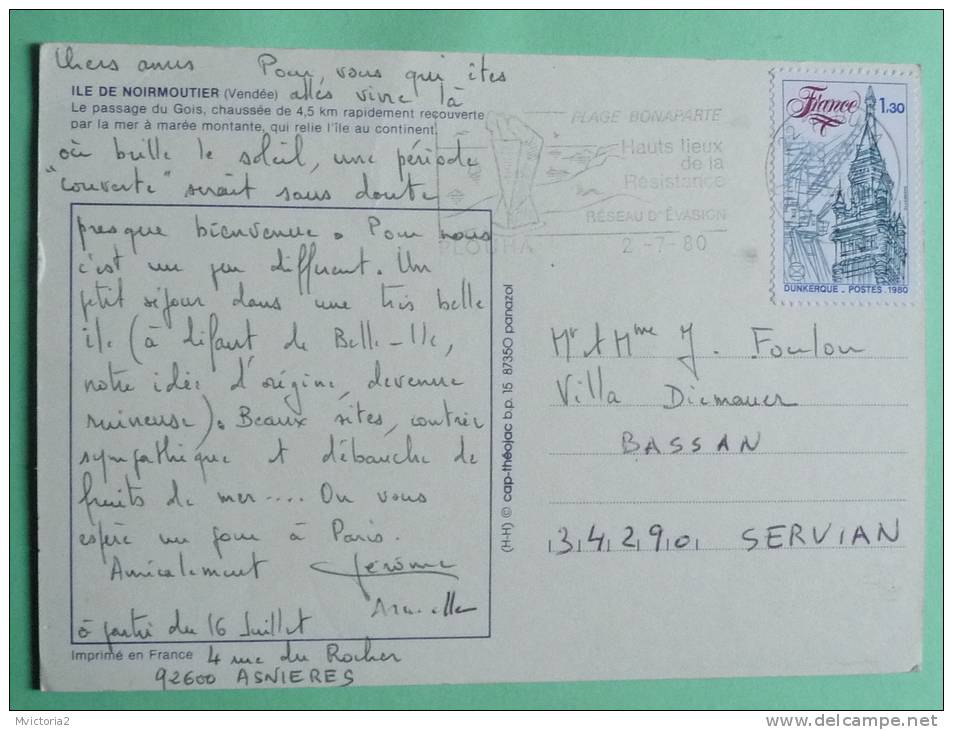 Chers amis Pour vous qui êtes
allés vivre là
ILE DE NOIRMOUTIER (Vendée)
Le passage du Gois, chaussée de 4,5 km rapidement recouverte
par la mer à marée montante, qui relie l'île au continent.
où brille le soleil, une période
"couverte" serait sans doute
presque bienvenue. Pour nous
c'est un peu different. Un
petit séjour dans une très belle
île (à défaut de Belle-Ile,
notre idée d'origine, devenue
ruineuse). Beaux sites, contrée
sympathique et débauche de
fruits de mer.... On vous
espère un jour à Paris.
Amicalement Jérôme
à partir du 16 Juillet
Imprimé en France 4 rue du Rocher
92600 ASNIERES
(H-H) © cap-théojac b.p. 15 87350 panazol
PLAGE BONAPARTE
Hauts lieux
de la
Résistance
RÉSEAU D'ÉVASION
PLOUHA 2-7-80
France 1,30
DUNKERQUE - POSTES 1980
Mr et Mme J. Foulon
Villa Diemauer
BASSAN
34290 SERVIAN
Mvictoria2
delcampe.net